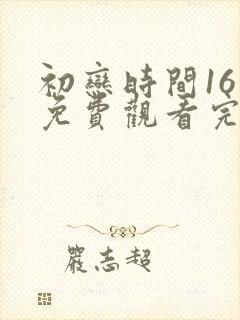 初戀時間16
免費觀看完
嚴志超